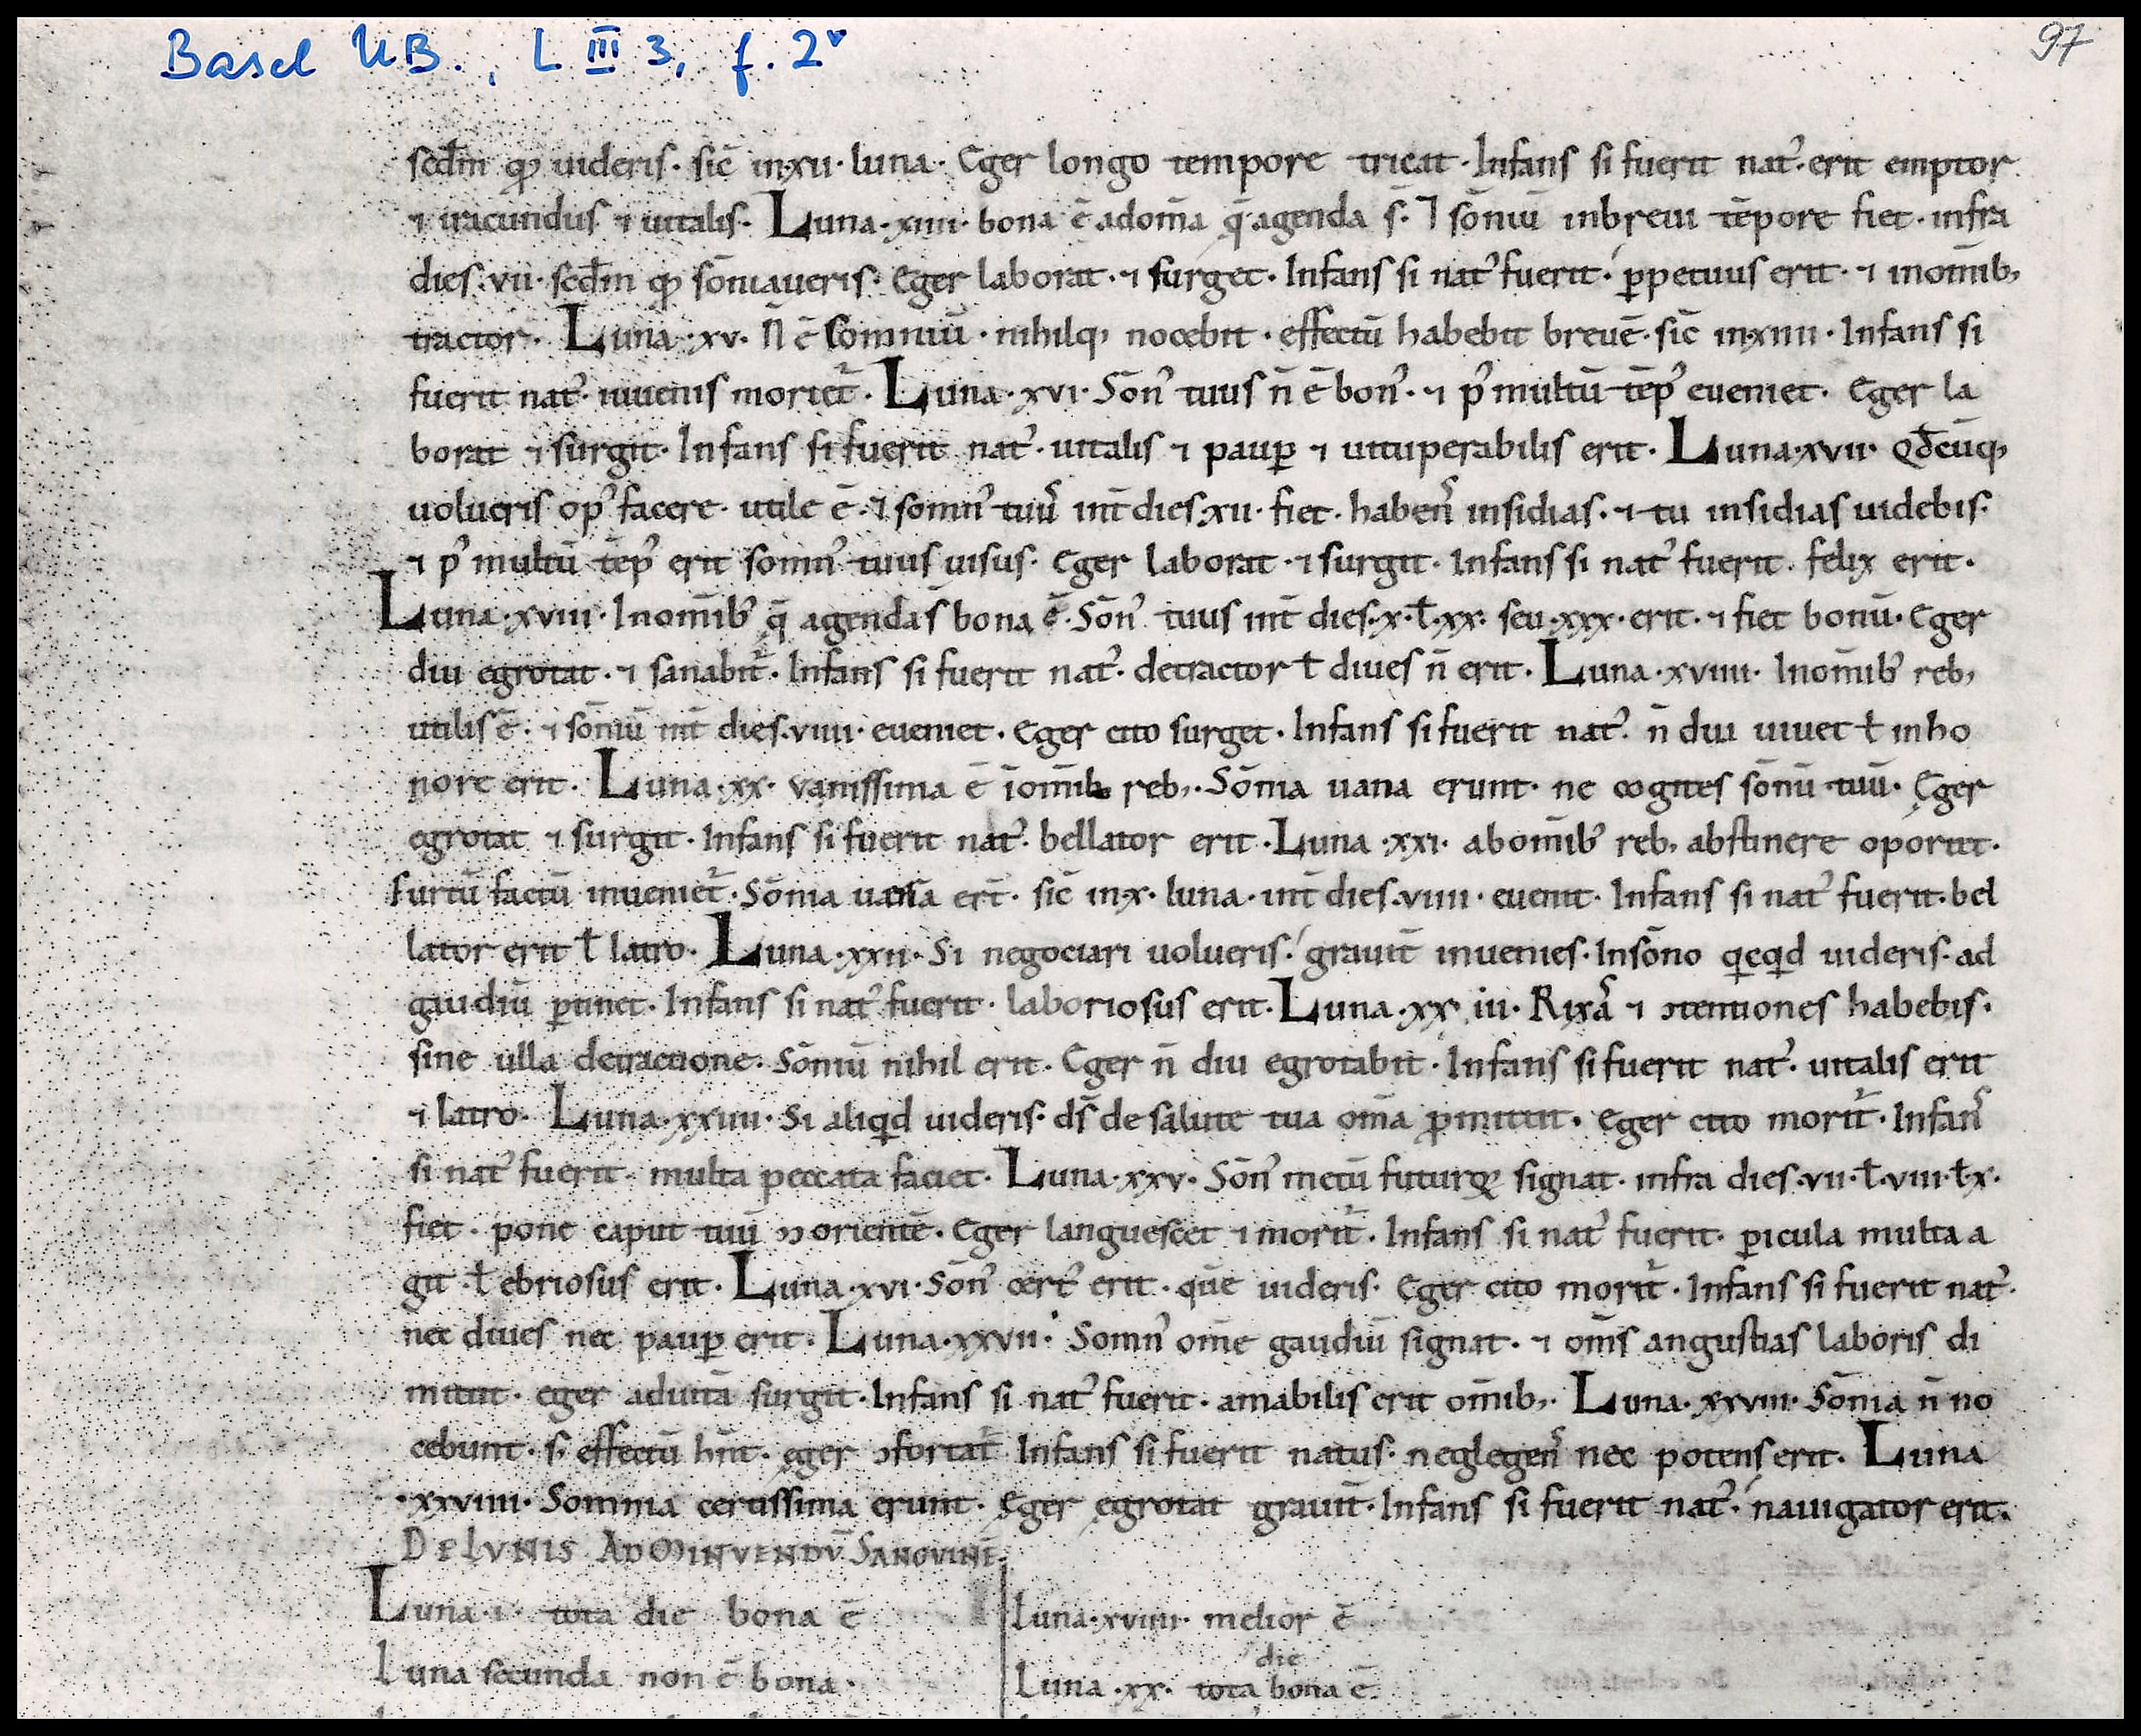 Basel UB., L III 3, f. 2v
97
scđm qđ uideris· sic̄ in·xii· luna· Eger longo tempore tricat· Infans si fuerit nat᾽· erit emptor
⁊ iracundus ⁊ uitalis· Luna·xiiii· bona ē adom̄a q̄ agenda s̄· ⁊ sōniū inbreui tēpore fiet· infra
dies·vii· scđm qđ sōniaueris· Eger laborat· ⁊ surget· Infans si nat᾽ fuerit· ꝑpetuus erit· ⁊ inom̄ib;
tractor· Luna·xv· N̄ ē somniū· nihilq; nocebit· effectū habebit breuē· sic̄ in·xiiii· Infans si
fuerit nat᾽· iuuenis moriet᷑· Luna·xvi· Sōn᾽ tuus n̄ ē bon᾽· ⁊ p᾽ multū tēp᾽ eueniet· Eger la
borat ⁊ surgit· Infans si fuerit nat᾽· uitalis ⁊ pauꝑ ⁊ uituperabilis erit· Luna·xvii· Qđcūq;
uolueris op᾽ facere· utile ē· ⁊ somn᾽ tuus int̄ dies·xii· fiet· habens insidias· ⁊ tu insidias uidebis·
⁊ p᾽ multū tēp᾽ erit somn᾽ tuus uisus· Eger laborat· ⁊ surgit· Infans si nat᾽ fuerit· felix erit·
Luna·xviii· Inom̄ib᾽ q̄ agenda s̄ bona ē· Sōn᾽ tuus int̄ dies·x·ł·xx· seu·xxx· erit· ⁊ fiet bonū· Eger
diu egrotat· ⁊ sanabit᷑· Infans si fuerit nat᾽· detractor ł diues n̄ erit· Luna·xviiii· Inom̄ib᾽ reb;
utilis ē· ⁊ sōniū int̄ dies·viiii· eueniet· Eger cito surget· Infans si fuerit nat᾽· n̄ diu uiuet ł inho
nore erit· Luna·xx· vanissima ē īom̄ib; reb;· Sōnia uana erunt· ne cogites sōnū tuū· Eger
egrotat ⁊ surgit· Infans si fuerit nat᾽· bellator erit· Luna·xxi· abom̄ib᾽ reb; abstinere oportet·
furtū factū inueniet᷑· Sōnia uana er̄t· sic̄ in·x· luna· int̄ dies·viiii· euenit· Infans si nat᾽ fuerit· bel
lator erit ł latro· Luna·xxii· Si negociari uolueris· grauit̄ inuenies· Insōno qicqid uideris· ad
gaudiū ꝑtinet· Infans si nat᾽ fuerit· laboriosus erit· Luna·xx iii· Rixas ⁊ ↄtentiones habebis·
sine ulla detractione· Sōniū nihil erit· Eger n̄ diu egrotabit· Infans si fuerit nat᾽· uitalis erit
⁊ latro· Luna·xxiiii· Si aliqid uideris· ds̄ de salute tua om̄a ꝓmittit· Eger cito morit᷑· Infans
si nat᾽ fuerit· multa peccata faciet· Luna·xxv· Sōn᾽ metū futuroꝝ signat· infra dies·vii·ł·viii·ł·x·
fiet· pone caput tuū ↄ oriente· Eger languescet ⁊ morit᷑· Infans si nat᾽ fuerit· ꝑicula multa a
git ł ebriosus erit· Luna·xvi· Sōn᾽ cert᾽ erit· quē uideris· Eger cito morit᷑· Infans si fuerit nat᾽·
nec diues nec pauꝑ erit· Luna·xxvii· Somn᾽ om̄e gaudiū signat· ⁊ om̄s angustias laboris di
mittit· eger aduitā surgit· Infans si nat᾽ fuerit· amabilis erit om̄ib;· Luna·xxviii· Sōnia n̄ no
cebunt· s; effectū hn̄t· eger ↄfortat᷑ Infans si fuerit natus· neglegens nec potens erit· Luna
·xxviiii· Somnia certissima erunt· Eger egrotat grauit̄· Infans si fuerit nat᾽· nauigator erit·
DE LVNIS AD MINVENDV̄ SANGVINE·
Luna·i· tota die bona ē
Luna secunda non ē bona·
Luna·xviiii· melior ē
die
Luna·xx· tota bona ē·